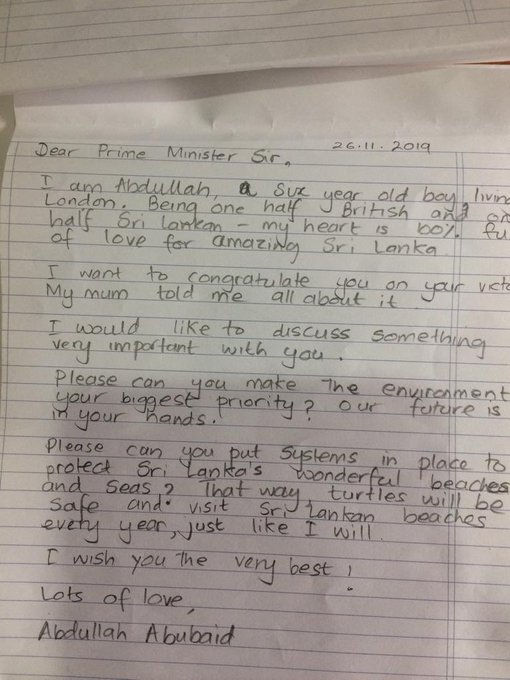 Dear Prime Minister Sir,
26.11.2019
I am Abdullah, a six year old boy
London. Being one half British and
half Sri Lankan - my heart is 100%
of love for amazing Sri Lanka.
I want to congratulate you on your
My mum told me all about it.
I would like to discuss something
very important with you.
Please can you make the environment
your biggest priority? Our future is
in your hands.
Please can you put systems in place to
protect Sri Lanka's wonderful beaches
and seas? That way, turtles will be
safe and visit Sri Lankan beaches
every year, just like I will.
I wish you the very best!
Lots of love,
Abdullah Abubaid